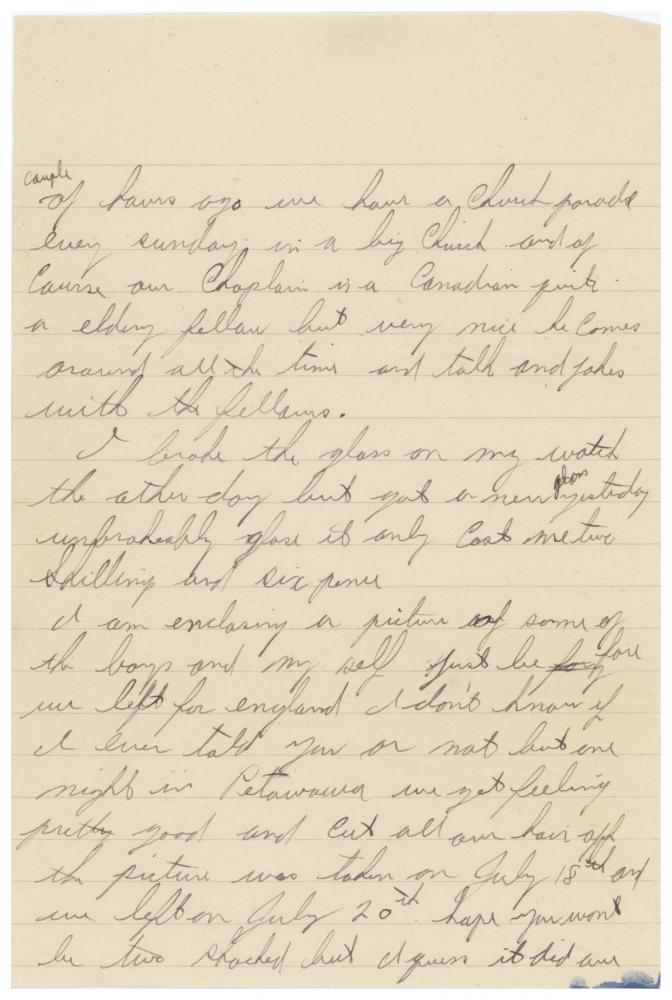 couple
of hours ago we have a Church parade
every sunday in a big Church and of
Course our Chaplain is a Canadian quite
a eldery fellow but very nice he Comes
around all the time and talk and jokes
with the fellows.
I broke the glass on my watch
the other day but got a new glass yesterday
unbrakeably glase it only Cost me two
Shilling and six pence
I am enclosing a picture of some of
the boys and my self just be fore
we left for england I don't know if
I ever told you or not but one
night in Petawawa we got feeling
pretty good and Cut all our hair off
the picture was taken on July 18th and
we left on July 20th. hope you wont
be two shocked but I guess it did our